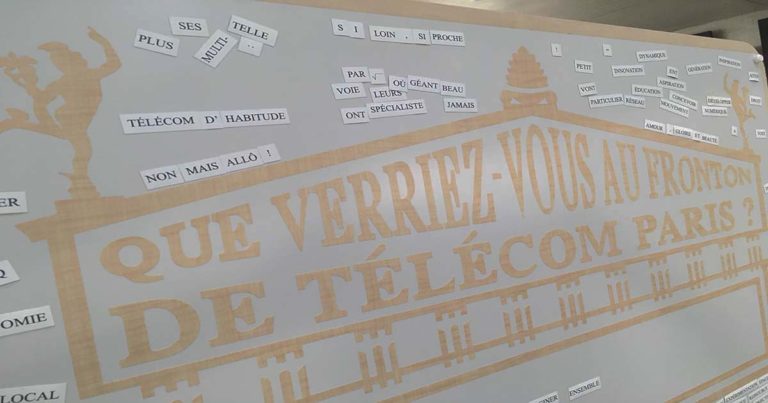 SES TELLE
PLUS MULTI- ..
SI LOIN , SI PROCHE
PAR √ OÙ GÉANT BEAU
VOIE LEURS
ONT SPÉCIALISTE JAMAIS
TÉLÉCOM D' HABITUDE
NON MAIS ALLÔ !
! -
PETIT INNOVATION DYNAMIQUE
EST GÉNÉRATION INSPIRATION
VONT ÉDUCATION ASPIRATION
PARTICULIER RÉSEAU MOUVEMENT CONCEVOIR
DÉVELOPPER NUMÉRIQUE DROIT
AMOUR , GLOIRE ET BEAUTÉ
QUE VERRIEZ-VOUS AU FRONTON
DE TÉLÉCOM PARIS ?
ER
Q
OMIE
LOCAL
INER ENSEMBLE